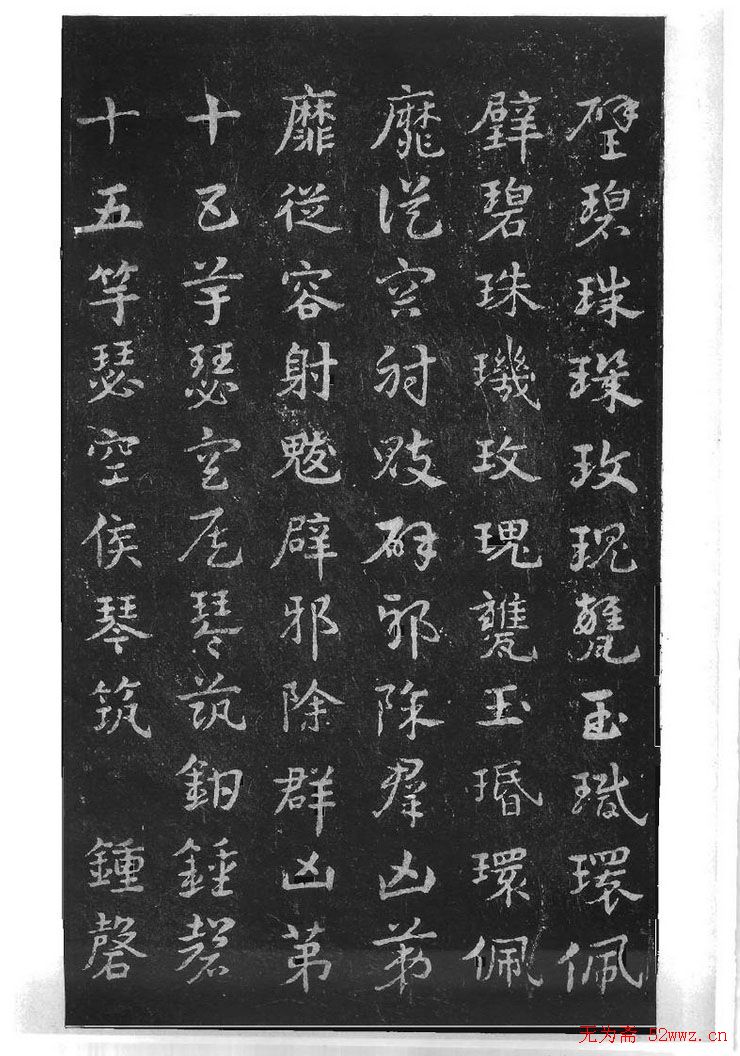 璧碧珠璣玫瑰甕玉環佩
璧碧珠璣玫瑰甕玉環佩
靡從容射鬾辟邪除群凶第
靡從容射鬾辟邪除群凶第
十五竽瑟空侯琴筑鍾磬
十五竽瑟空侯琴筑 鍾磬
无为斋 52wwz.cn